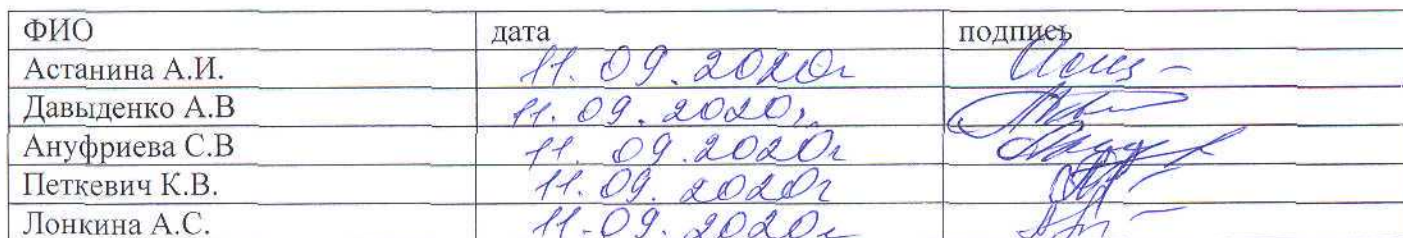 ФИО дата подпись
Астанина А.И. 11.09.2020г
Давыденко А.В 11.09.2020г.
Ануфриева С.В 11.09.2020г
Петкевич К.В. 11.09.2020г
Лонкина А.С. 11.09.2020г